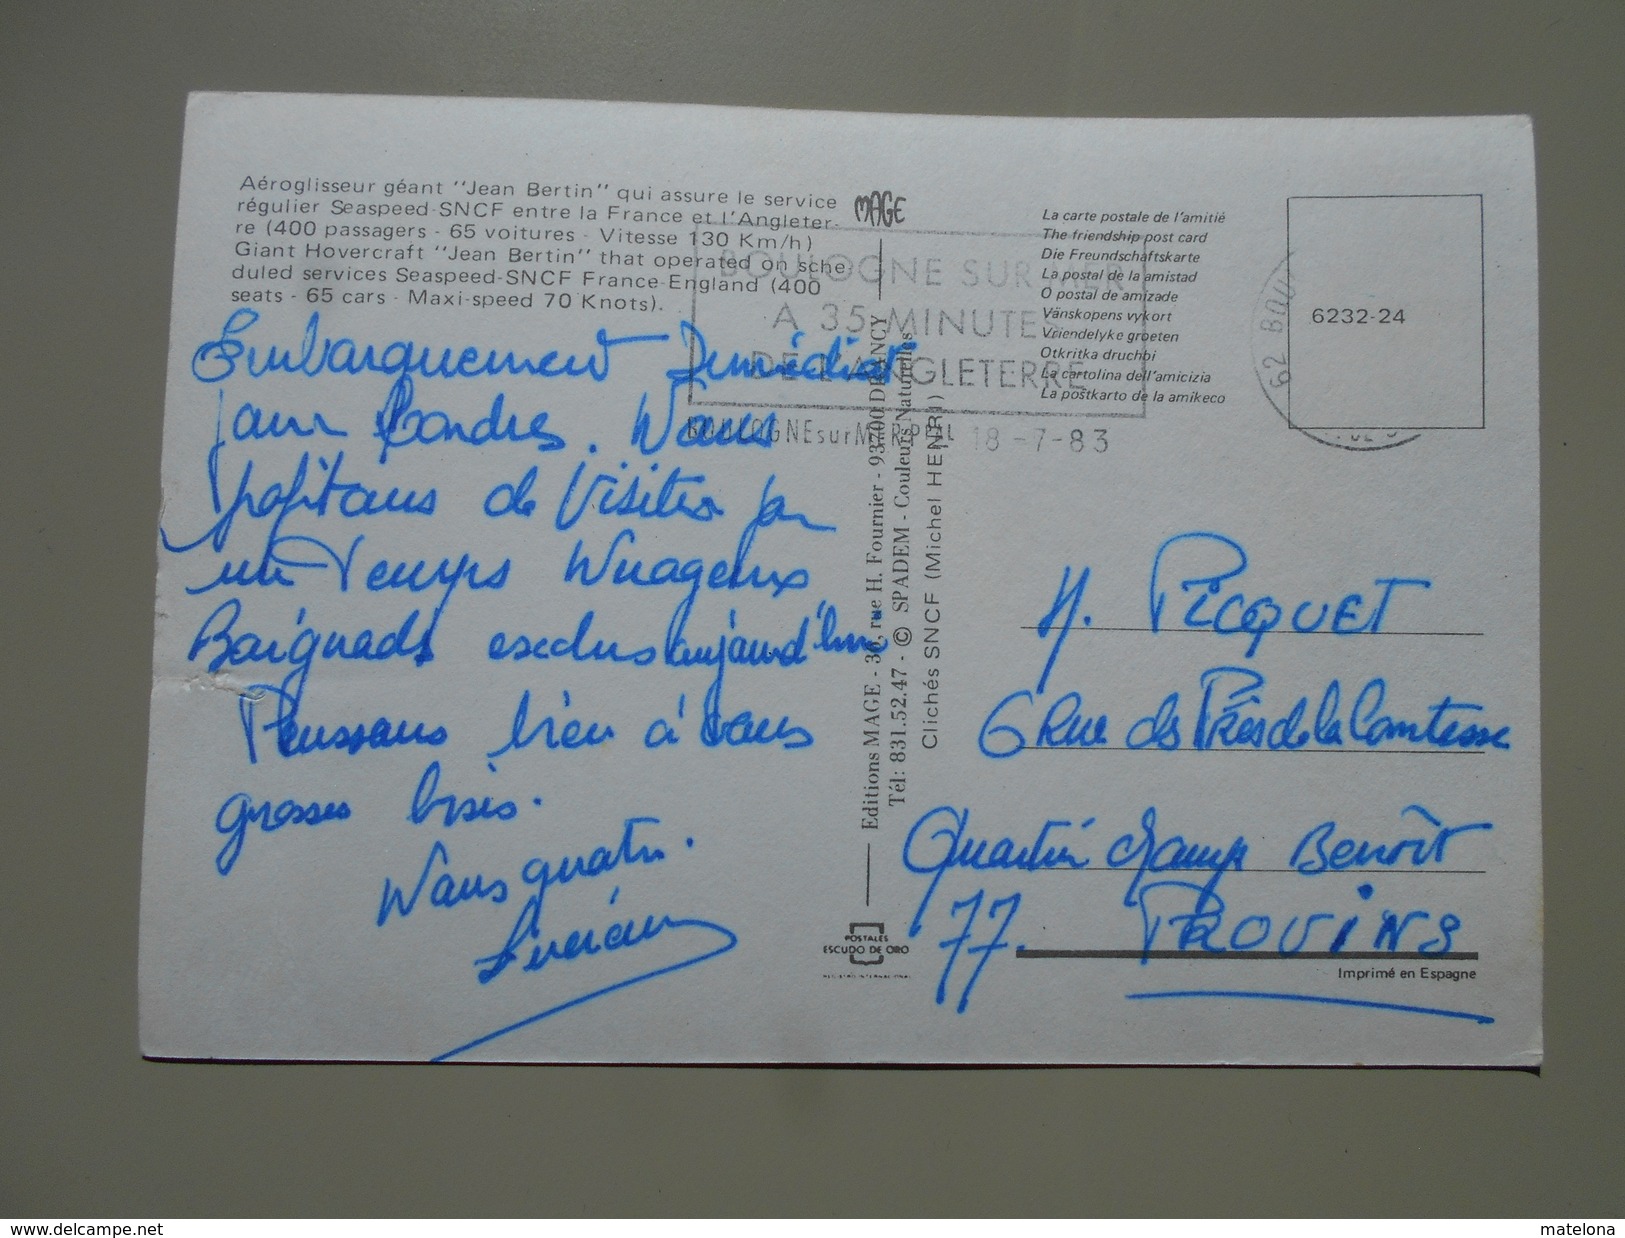 Aéroglisseur géant ''Jean Bertin'' qui assure le service
régulier Seaspeed-SNCF entre la France et l'Angleter-
re (400 passagers - 65 voitures - Vitesse 130 Km/h)
Giant Hovercraft ''Jean Bertin'' that operated on sche
duled services Seaspeed-SNCF France-England (400
seats - 65 cars - Maxi-speed 70 Knots).
MAGE
BOULOGNE SUR MER
A 35 MINUTES
DE L'ANGLETERRE
BOULOGNE sur MER PPAL 18-7-83
62 BOU
La carte postale de l'amitié
The friendship post card
Die Freundschaftskarte
La postal de la amistad
O postal de amizade
Vänskopens vykort
Vriendelyke groeten
Otkritka druchbi
La cartolina dell'amicizia
La postkarto de la amikeco
6232-24
Embarquement Immédiat
pour Londres. Nous
profitons de visiter par
un temps Nuageux
Baignade exclus aujourd'hui
Pensons bien à vous
grosses bises.
Nous quatre.
Editions MAGE - 30, rue H. Fournier - 93700 DRANCY
Tél: 831.52.47 - © SPADEM - Couleurs Naturelles
Clichés SNCF (Michel HENRI)
M. PICQUET
6 Rue des Prés de la Comtesse
Quartier Champ Benoît
77. PROVINS
POSTALES
ESCUDO DE ORO
REGISTRO INTERNACIONAL
Imprimé en Espagne
www.delcampe.net
matelona